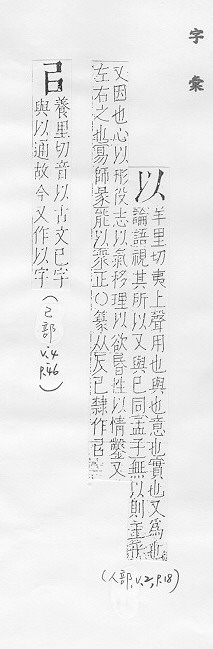 字彙
以
羊里切夷上聲用也與也意也實也又為也
論語視其所以又與已同孟子無以則王乎
又因也心以形役志以氣移理以欲昬性以情鑿又
左右之也易師彖能以衆正○篆从反已隸作㠯
(人部, V.2, P.18)
㠯
養里切音以古文已字
與以通故今又作以字
(己部 V.4 P.46)